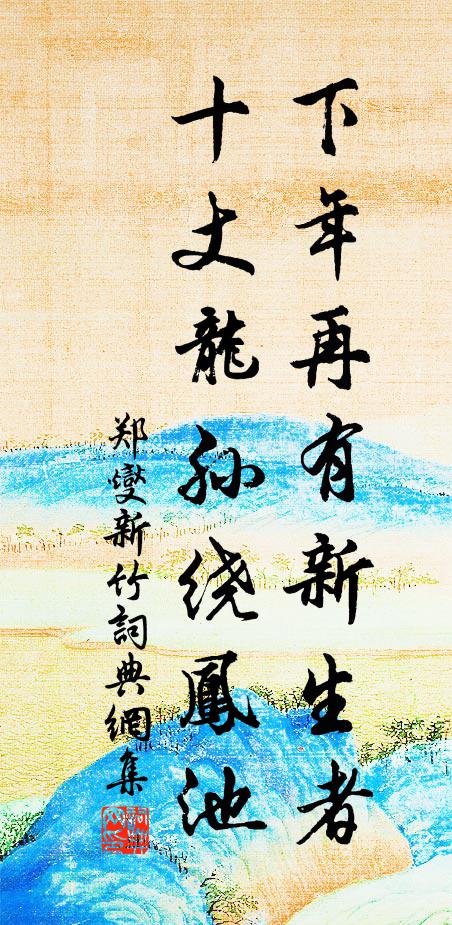 下年再有新生者
十丈龍孙绕鳳池
郑燮新竹詞典網集